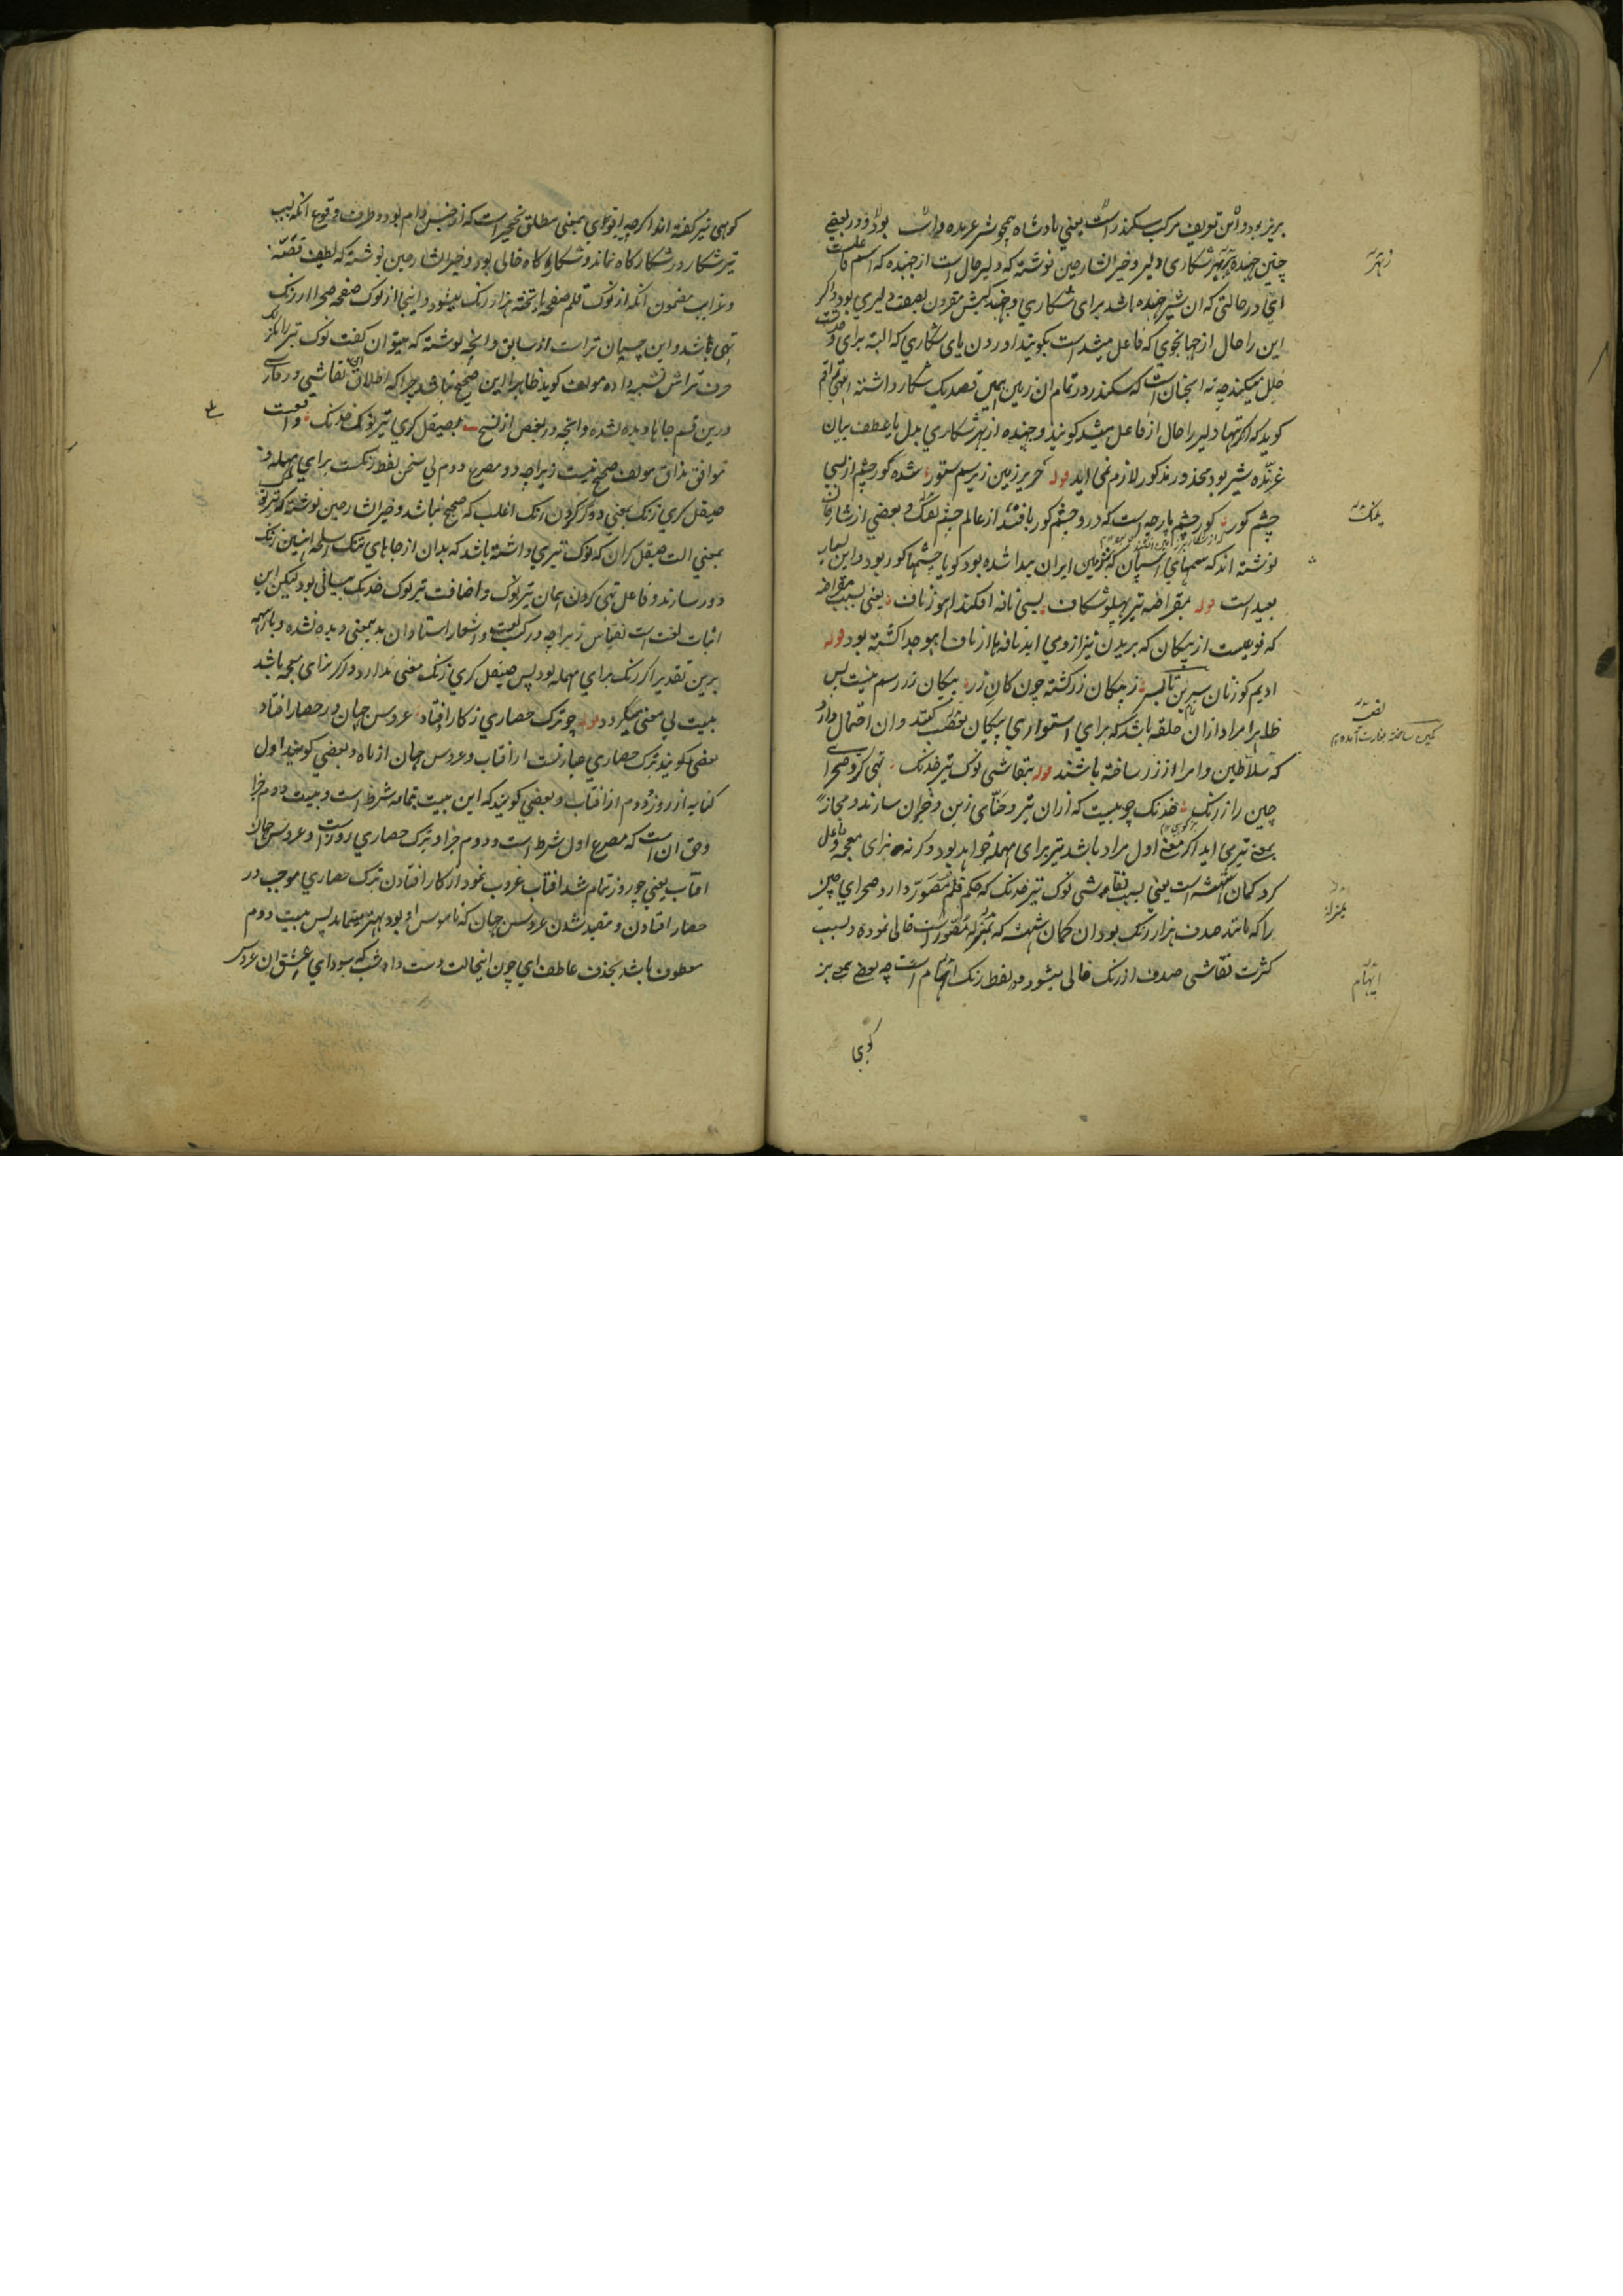 بریز بود و این تعریف مرکب سکندر است یعنی بادشاه همچو شیر عربده داشت بود و در بعضی
چنین جهنده بهر شکاری دلیر و خیر الشارحین نوشته که دلیر حال است از جهنده که اسم فاعلست
ای در حالتی که ان شیر جهنده باشد برای شکاری و جهندگیش مقرون بصفت دلیری بود و اگر
این را حال از جهانجوی که فاعل میشد است بگویند اوردن یای شکاری که البته برای وحدت
خلل میکند چه نه انچنان است که سکندر در تمام ان زمین همین قصد یک شکار داشته انتهی راقم
کوید که اگر تنها دلیر را حال از فاعل میشد کویند و جهنده از بهر شکاری بدل یا عطف بیان
غرنده شیر بود محذور مذکور لازم نمی اید قوله حریر زمین زیر سم ستور شده کور چشم از بسی
چشم کور کور چشم پارچه است که در و چشم کور بافند از عالم چشم بلنک و بعضی از شارحان
نوشته اند که سمهای اسپان که بزمین ایران پیدا شده بود کویا چشمها کور بود و این بسیار
بعید است قوله بمقراضه تیر پهلو شکاف بسی نافه افکند اهو ز ناف یعنی بسبب مقراضه
که نوعیست از پیکان که بریدن نیز ازو می اید نافه ها از ناف اهو جدا کشته بود قوله
ادیم کوزنان سرین تا بسر ز پیکان زر کشته چون کان زر پیکان زر رسم نیست پس
ظاهرا مراد ازان حلقه باشد که برای استواری پیکان نصب کنند و ان احتمال دارد
که سلاطین و امرا از زر ساخته باشند قوله بنقاشی نوک تیر خدنک تهی کرد صحرای
چین را ز رنک خدنک چوبیست که ازان تیر و حنای زین و جزان سازند و مجازا
بمعنی تیر می اید اگر معنی اول مراد باشد تیر برای مهمله خواهد بود و کر نه بزای معجمه و فاعل
کرد کمان شهشه است یعنی بسبب نقاشی نوک تیر خدنک که حکم قلم مصور دارد صحرای چین
را که مانند صدف هزار رنک بود ان کمان شهشه که بمنزله مصور است خالی نموده و بسبب
کثرت نقاشی صدف از رنک خالی میشود و در لفظ رنک ایهام است چه بعضی بمعنی بز
کوهی
بلنک
نصب
بمنزله
ایهام
کوهی نیز کفته اند اگرچه اقوی بمعنی مطلق نخجیر است که از جنس دام بود و طرف وقوع انکه بسبب
تیر شکار در شکار کاه نماند و شکار کاه خالی بود و خیر الشارحین نوشته که لطیف قصه
و غرایب مضمون انکه از نوک قلم صفحه یا تخته هزار رنک میشود و اینجا از نوک صفحه صحرا از رنک
تهی باشد و این چسپان تر است از سابق و انچه نوشته که میتوان کفت نوک تیر را بنوک
حرف تراش تشبیه داده مولف کوید ظاهرا این صحیح نباشد چرا که اطلاق نقاشی در فارسی
درین قسم جاها دیده نشده و انچه در بعض از نسخ بصیقل کری تیر نوک خدنک واقعست
موافق مذاق مولف صحیح نیست زیرا چه در مصرع دوم بی سخن لفظ رنکست برای مهمله و
صیقل کری زنک بمعنی دور کردن رنک اغلب که صحیح نباشد و خیر الشارحین نوشته که تیر نوک
بمعنی الت صیقل کران که نوک تیزی داشته باشد که بدان از جاهای تنک اسلحه اهنین زنک
دور سازند و فاعل تهی کردن همان تیر نوک و اضافت تیر نوک خدنک بیانی بود لیکن این
اثبات لغت است بقیاس زیرا چه در کتب لغت و اشعار استادان بدیمعنی دیده نشده و با اینهمه
برین تقدیر اگر رنک برای مهمله بود پس صیقل کری زنک معنی ندارد و اگر بزای معجمه باشد
بیت بی معنی میکردد قوله چو ترک حصاری ز کار اوفتاد عروس جهان در حصار افتاد
بعضی کویند ترک حصاری عبارتست از افتاب و عروس جهان از ماه و بعضی کویند اول
کنایه از روز و دوم از افتاب و بعضی کویند که این بیت بتمامه شرط است و بیت دوم جزا
و حق ان است که مصرع اول شرط است و دوم جزا و ترک حصاری روز است و عروس جهان
افتاب یعنی چو روز تمام شد افتاب غروب نمود از کار افتادن ترک حصاری موجب در
حصار افتادن و مقید شدن عروس جهان که ناموس او بود بهتر مینماید پس بیت دوم
معطوف باشد بحذف عاطف ای چون اینحالت دست داد شب که سودای عشق ان عروس